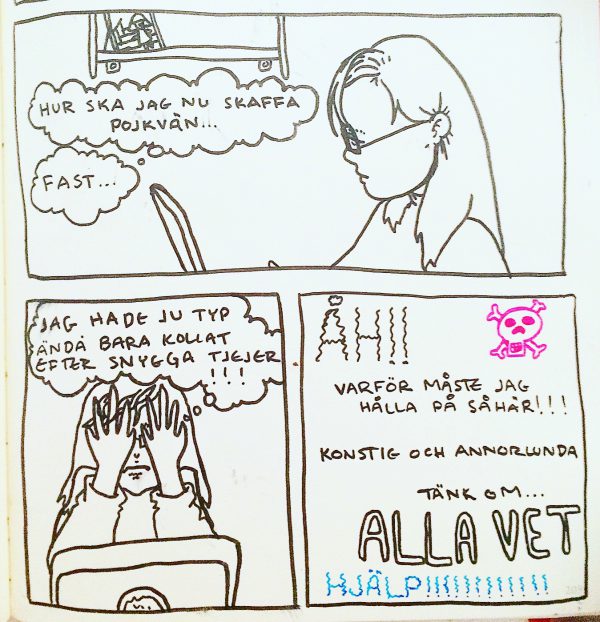 HUR SKA JAG NU SKAFFA
POJKVÄN...
FAST...
JAG HADE JU TYP
ÄNDÅ BARA KOLLAT
EFTER SNYGGA TJEJER
!!!
ÅH!!
VARFÖR MÅSTE JAG
HÅLLA PÅ SÅHÄR!!!
KONSTIG OCH ANNORLUNDA
TÄNK OM...
ALLA VET
HJÄLP!!!!!!!!!!!!!